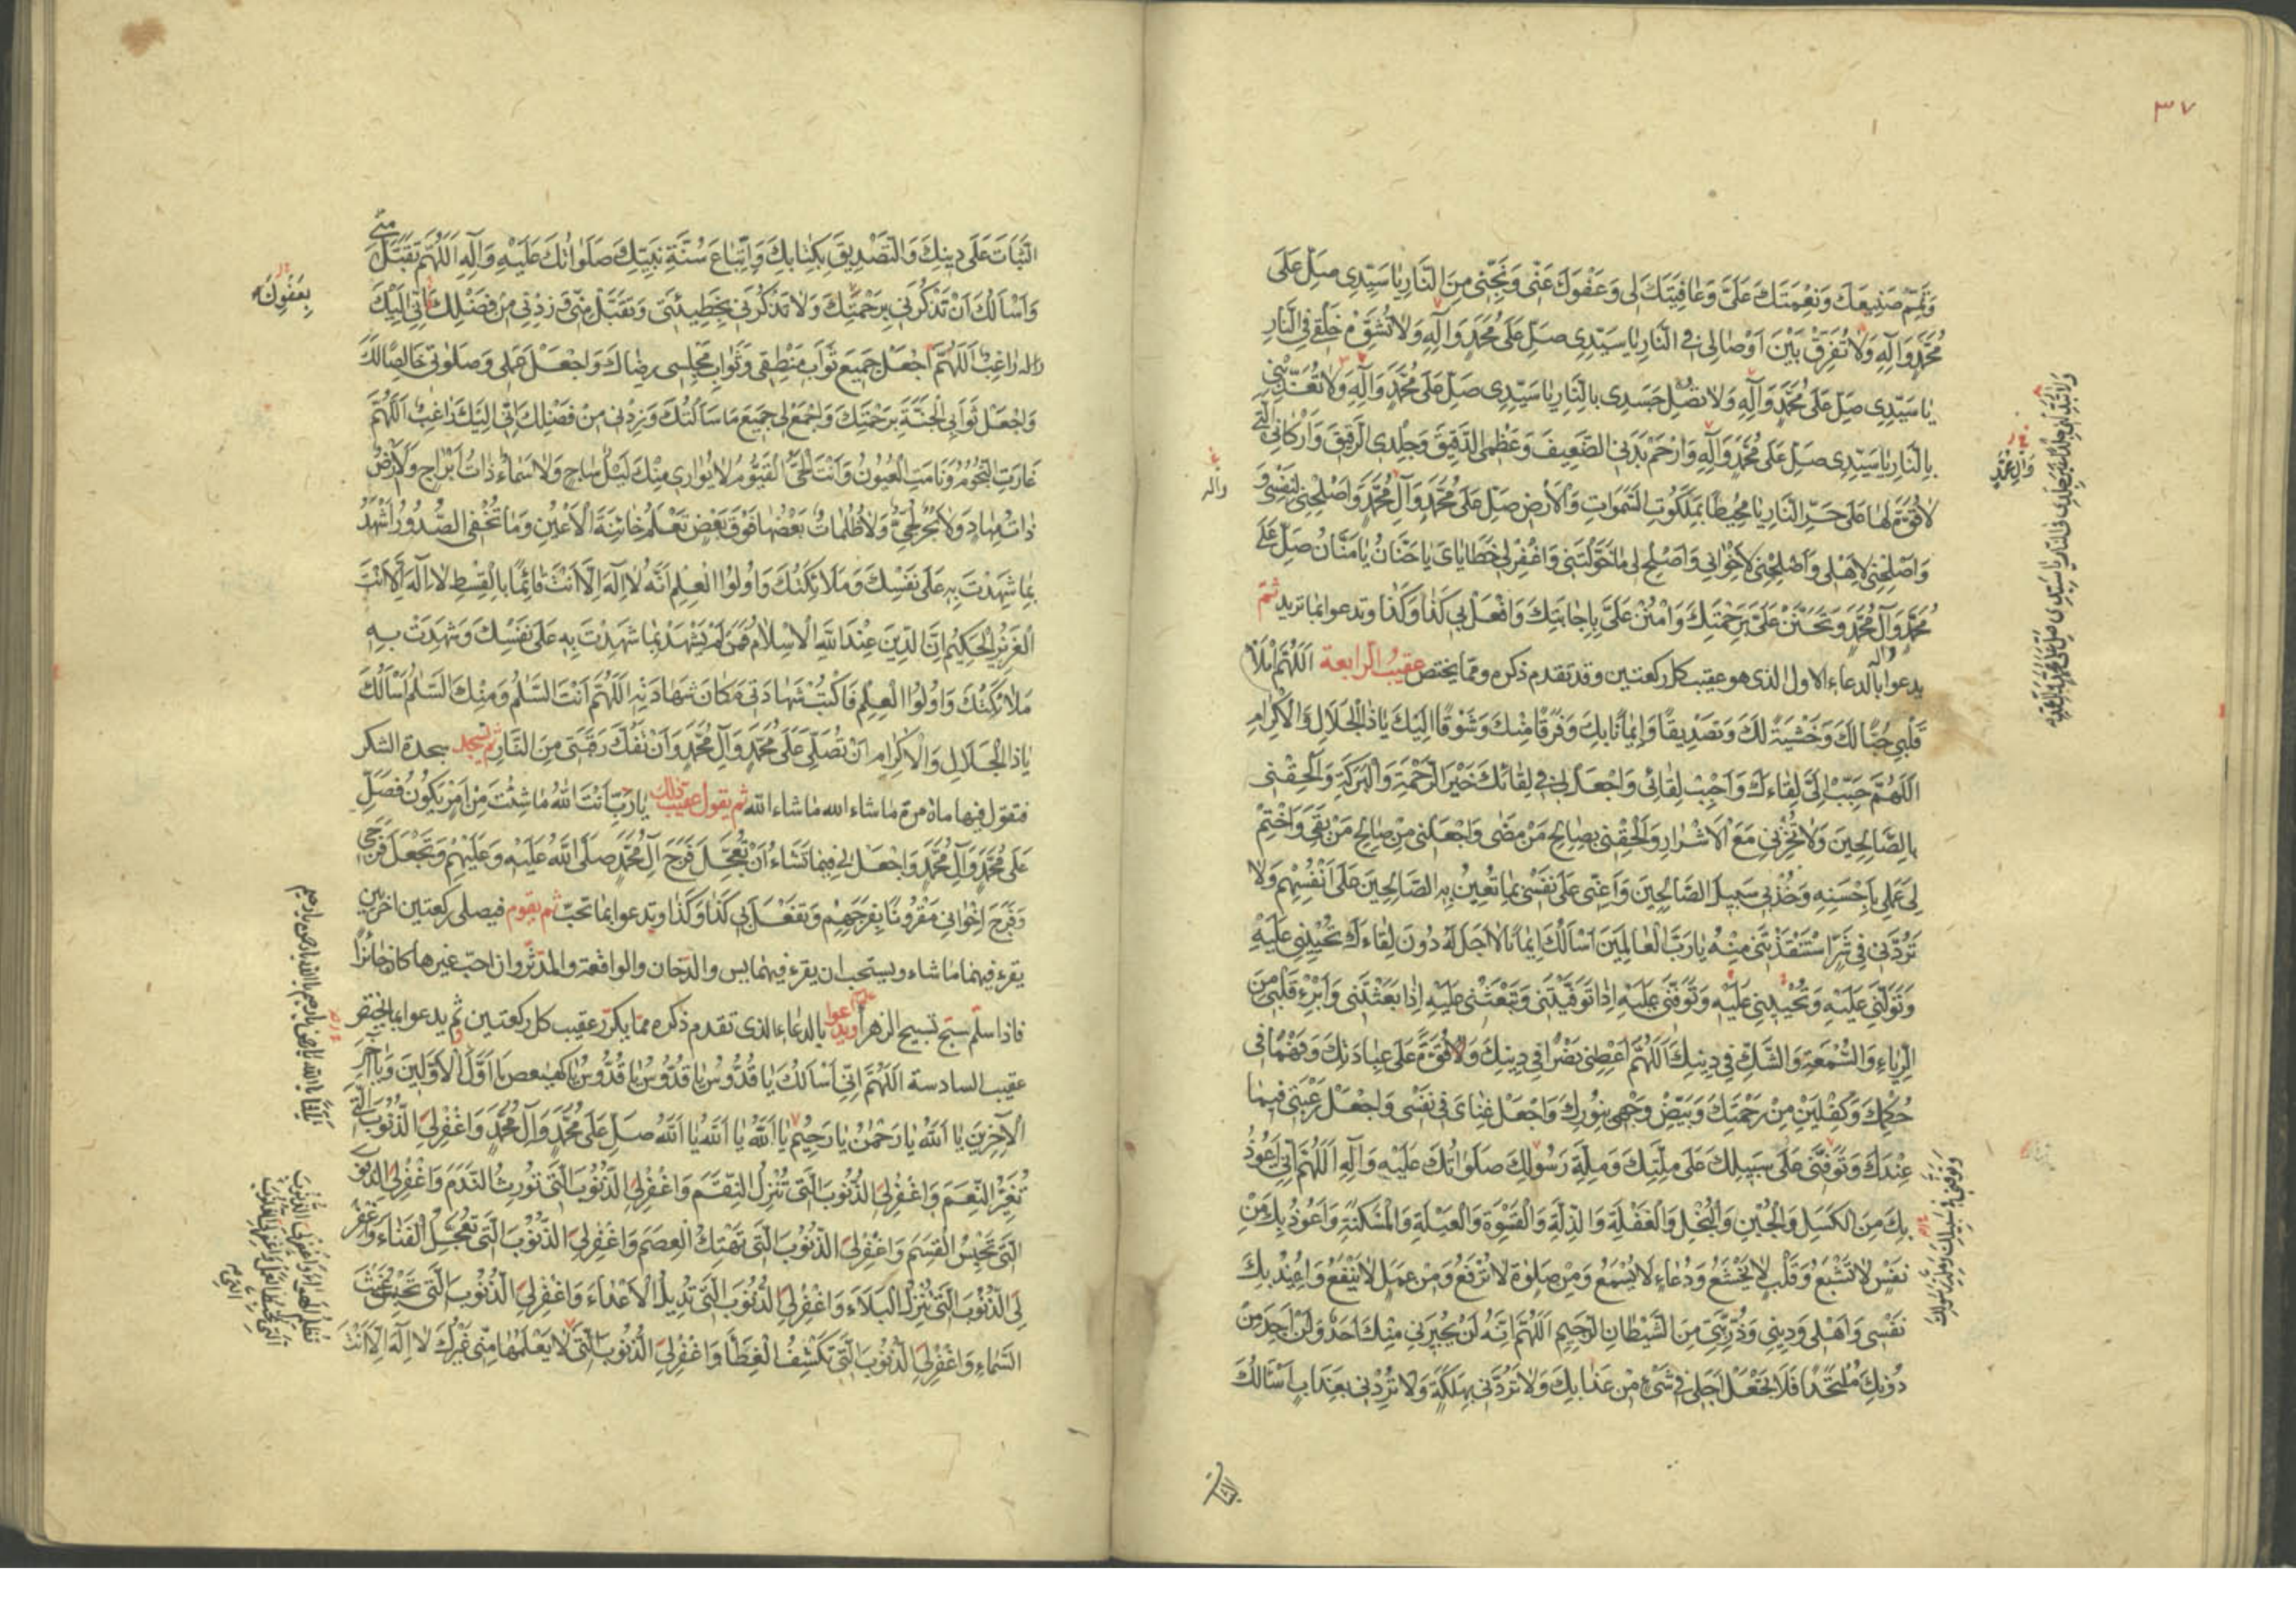 ٣٧
وَتُمِّمْ صَنِيعَكَ وَنِعْمَتَكَ عَلَيَّ وَعَافِيَتَكَ لِي وَعَفْوَكَ عَنِّي وَنَجِّنِي مِنَ النَّارِ يَا سَيِّدِي صَلِّ عَلَى
مُحَمَّدٍ وَآلِهِ وَلَا تُفَرِّقْ بَيْنَ أَوْصَالِي فِي النَّارِ يَا سَيِّدِي صَلِّ عَلَى مُحَمَّدٍ وَآلِهِ وَلَا تُشَوِّهْ خَلْقِي فِي النَّارِ
يَا سَيِّدِي صَلِّ عَلَى مُحَمَّدٍ وَآلِهِ وَلَا تُصْلِ جَسَدِي بِالنَّارِ يَا سَيِّدِي صَلِّ عَلَى مُحَمَّدٍ وَآلِهِ وَلَا تُعَذِّبْنِي
بِالنَّارِ يَا سَيِّدِي صَلِّ عَلَى مُحَمَّدٍ وَآلِهِ وَارْحَمْ بَدَنِيَ الضَّعِيفَ وَعَظْمِيَ الدَّقِيقَ وَجِلْدِيَ الرَّقِيقَ وَأَرْكَانِيَ الَّتِي
لَا قُوَّةَ لَهَا عَلَى حَرِّ النَّارِ يَا مُحِيطًا بِمَلَكُوتِ السَّمَوَاتِ وَالْأَرْضِ صَلِّ عَلَى مُحَمَّدٍ وَآلِ مُحَمَّدٍ وَأَصْلِحْنِي لِنَفْسِي وَ
وَأَصْلِحْنِي لِأَهْلِي وَأَصْلِحْنِي لِإِخْوَانِي وَأَصْلِحْ لِي مَا خَوَّلْتَنِي وَاغْفِرْ لِي خَطَايَايَ يَا حَنَّانُ يَا مَنَّانُ صَلِّ عَلَى
مُحَمَّدٍ وَآلِ مُحَمَّدٍ وَتَحَنَّنْ عَلَيَّ بِرَحْمَتِكَ وَامْنُنْ عَلَيَّ بِإِجَابَتِكَ وَافْعَلْ بِي كَذَا وَكَذَا وتدعوا بما تريد ثم
يدعوا بالدعاء الاول الذى هو عقيب كل ركعتين وقد تقدم ذكره ومما يختص عقيب الرابعة اَللّٰهُمَّ امْلَأْ
قَلْبِي حُبًّا لَكَ وَخَشْيَةً لَكَ وَتَصْدِيقًا وَإِيمَانًا بِكَ وَفَرَقًا مِنْكَ وَشَوْقًا إِلَيْكَ يَا ذَا الْجَلَالِ وَالْإِكْرَامِ
اَللّٰهُمَّ حَبِّبْ إِلَيَّ لِقَاءَكَ وَأَحْبِبْ لِقَائِي وَاجْعَلْ لِي فِي لِقَائِكَ خَيْرَ الرَّحْمَةِ وَالْبَرَكَةِ وَأَلْحِقْنِي
بِالصَّالِحِينَ وَلَا تُخْزِنِي مَعَ الْأَشْرَارِ وَأَلْحِقْنِي بِصَالِحِ مَنْ مَضَى وَاجْعَلْنِي مِنْ صَالِحِ مَنْ بَقِيَ وَاخْتِمْ
لِي عَمَلِي بِأَحْسَنِهِ وَخُذْ بِي سَبِيلَ الصَّالِحِينَ وَأَعِنِّي عَلَى نَفْسِي بِمَا تُعِينُ بِهِ الصَّالِحِينَ عَلَى أَنْفُسِهِمْ وَلَا
تَرُدَّنِي فِي شَرٍّ اسْتَنْقَذْتَنِي مِنْهُ يَا رَبَّ الْعَالَمِينَ أَسْأَلُكَ إِيمَانًا لَا أَجَلَ لَهُ دُونَ لِقَاءِكَ تُحْيِينِي عَلَيْهِ
وَتَوَلَّنِي عَلَيْهِ وَتُحْيِينِي عَلَيْهِ وَتَوَفَّنِي عَلَيْهِ إِذَا تَوَفَّيْتَنِي وَتَبْعَثْنِي عَلَيْهِ إِذَا بَعَثْتَنِي وَأَبْرِءْ قَلْبِي مِنَ
الرِّيَاءِ وَالسُّمْعَةِ وَالشَّكِّ فِي دِينِكَ اَللّٰهُمَّ أَعْطِنِي نَصْرًا فِي دِينِكَ وَقُوَّةً عَلَى عِبَادَتِكَ وَفَهْمًا فِي
حُكْمِكَ وَكِفْلَيْنِ مِنْ رَحْمَتِكَ وَبَيِّضْ وَجْهِي بِنُورِكَ وَاجْعَلْ غِنَايَ فِي نَفْسِي وَاجْعَلْ رَغْبَتِي فِيمَا
عِنْدَكَ وَتَوَفَّنِي عَلَى سَبِيلِكَ عَلَى مِلَّتِكَ وَمِلَّةِ رَسُولِكَ صَلَوَاتُكَ عَلَيْهِ وَآلِهِ اَللّٰهُمَّ إِنِّي أَعُوذُ
بِكَ مِنَ الْكَسَلِ وَالْجُبْنِ وَالْبُخْلِ وَالْغَفْلَةِ وَالذِّلَّةِ وَالْقَسْوَةِ وَالْعَيْلَةِ وَالْمَسْكَنَةِ وَأَعُوذُ بِكَ مِنْ
نَفْسٍ لَا تَشْبَعُ وَقَلْبٍ لَا يَخْشَعُ وَدُعَاءٍ لَا يُسْمَعُ وَمِنْ صَلَوةٍ لَا تُرْفَعُ وَمِنْ عَمَلٍ لَا يَنْفَعُ وَأُعِيذُ بِكَ
نَفْسِي وَأَهْلِي وَدِينِي وَذُرِّيَّتِي مِنَ الشَّيْطَانِ الرَّجِيمِ اَللّٰهُمَّ إِنَّهُ لَنْ يُجِيرَنِي مِنْكَ أَحَدٌ وَلَنْ أَجِدَ مِنْ
دُونِكَ مُلْتَحَدًا فَلَا تَجْعَلْ أَجَلِي فِي شَيْءٍ مِنْ عَذَابِكَ وَلَا تَرُدَّنِي بِهَلَكَةٍ وَلَا تُرِدْنِي بِعَذَابٍ أَسْأَلُكَ
الثبات
وَآلِ مُحَمَّدٍ
وآله
الثَّبَاتَ عَلَى دِينِكَ وَالتَّصْدِيقَ بِكِتَابِكَ وَاتِّبَاعَ سُنَّةِ نَبِيِّكَ صَلَوَاتُكَ عَلَيْهِ وَآلِهِ اَللّٰهُمَّ تَقَبَّلْ مِنِّي
وَأَسْأَلُكَ أَنْ تَذْكُرَنِي بِرَحْمَتِكَ وَلَا تَذْكُرَنِي بِخَطِيئَتِي وَتَقَبَّلْ مِنِّي وَزِدْنِي مِنْ فَضْلِكَ إِنِّي إِلَيْكَ
رَاغِبٌ اَللّٰهُمَّ اجْعَلْ جَمِيعَ ثَوَابِ مَنْطِقِي وَثَوَابِ مَجْلِسِي رِضَاكَ وَاجْعَلْ عَمَلِي وَصَلَوتِي خَالِصًا لَكَ
وَاجْعَلْ ثَوَابِيَ الْجَنَّةَ بِرَحْمَتِكَ وَاجْمَعْ لِي جَمِيعَ مَا سَأَلْتُكَ وَزِدْنِي مِنْ فَضْلِكَ إِنِّي إِلَيْكَ رَاغِبٌ اَللّٰهُمَّ
غَارَتِ النُّجُومُ وَنَامَتِ الْعُيُونُ وَأَنْتَ الْحَيُّ الْقَيُّومُ لَا يُوَارِي مِنْكَ لَيْلٌ سَاجٍ وَلَا سَمَاءٌ ذَاتُ أَبْرَاجٍ وَلَا أَرْضٌ
ذَاتُ مِهَادٍ وَلَا بَحْرٌ لُجِّيٌّ وَلَا ظُلُمَاتٌ بَعْضُهَا فَوْقَ بَعْضٍ تَعْلَمُ خَائِنَةَ الْأَعْيُنِ وَمَا تُخْفِي الصُّدُورُ أَشْهَدُ
بِمَا شَهِدْتَ بِهِ عَلَى نَفْسِكَ وَمَلَائِكَتُكَ وَأُولُوا الْعِلْمِ أَنَّهُ لَا إِلَهَ إِلَّا أَنْتَ قَائِمًا بِالْقِسْطِ لَا إِلَهَ إِلَّا أَنْتَ
الْعَزِيزُ الْحَكِيمُ إِنَّ الدِّينَ عِنْدَ اللهِ الْإِسْلَامُ فَمَنْ لَمْ يَشْهَدْ بِمَا شَهِدْتَ بِهِ عَلَى نَفْسِكَ وَشَهِدَتْ بِهِ
مَلَائِكَتُكَ وَأُولُوا الْعِلْمِ فَاكْتُبْ شَهَادَتِي مَكَانَ شَهَادَتِهِ اَللّٰهُمَّ أَنْتَ السَّلَامُ وَمِنْكَ السَّلَامُ أَسْأَلُكَ
يَا ذَا الْجَلَالِ وَالْإِكْرَامِ أَنْ تُصَلِّيَ عَلَى مُحَمَّدٍ وَآلِ مُحَمَّدٍ وَأَنْ تَفُكَّ رَقَبَتِي مِنَ النَّارِ ثم تسجد سجدة الشكر
فتقول فيها ماة مرة ما شاء الله ما شاء الله ثم يقول عقيب ذلك يَا رَبِّ أَنْتَ اللهُ مَا شِئْتَ مِنْ أَمْرٍ يَكُونُ فَصَلِّ
عَلَى مُحَمَّدٍ وَآلِ مُحَمَّدٍ وَاجْعَلْ لِي فِيمَا تَشَاءُ أَنْ تُعَجِّلَ فَرَجَ آلِ مُحَمَّدٍ صَلَّى اللهُ عَلَيْهِ وَعَلَيْهِمْ وَتَجْعَلَ فَرَجِي
وَفَرَجَ إِخْوَانِي مَقْرُونًا بِفَرَجِهِمْ وَتَفْعَلَ بِي كَذَا وَكَذَا وتدعوا بما تحب ثم يقوم فيصلى ركعتين اخريين
يقرء فيهما ما شاء ويستحب ان يقرء فيهما يس والدخان والواقعة والمدثر وان احب غيرها كان جائزا
فاذا سلم سبح تسبيح الزهرا ويدعوا بالدعاء الذى تقدم ذكره مما يكرر عقيب كل ركعتين ثم يدعوا بما يختص
عقيب السادسة اَللّٰهُمَّ إِنِّي أَسْأَلُكَ يَا قُدُّوسُ يَا قُدُّوسُ يَا قُدُّوسُ يَا كهيعص يَا أَوَّلَ الْأَوَّلِينَ وَيَا آخِرَ
الْآخِرِينَ يَا اَللهُ يَا رَحْمٰنُ يَا رَحِيمُ يَا اَللهُ يَا اَللهُ يَا اَللهُ صَلِّ عَلَى مُحَمَّدٍ وَآلِ مُحَمَّدٍ وَاغْفِرْ لِيَ الذُّنُوبَ الَّتِي
تُغَيِّرُ النِّعَمَ وَاغْفِرْ لِيَ الذُّنُوبَ الَّتِي تُنْزِلُ النِّقَمَ وَاغْفِرْ لِيَ الذُّنُوبَ الَّتِي تُورِثُ النَّدَمَ وَاغْفِرْ لِيَ الذُّنُوبَ
الَّتِي تَحْبِسُ الْقِسَمَ وَاغْفِرْ لِيَ الذُّنُوبَ الَّتِي تَهْتِكُ الْعِصَمَ وَاغْفِرْ لِيَ الذُّنُوبَ الَّتِي تُعَجِّلُ الْفَنَاءَ وَاغْفِرْ
لِيَ الذُّنُوبَ الَّتِي تُنْزِلُ الْبَلَاءَ وَاغْفِرْ لِيَ الذُّنُوبَ الَّتِي تُدِيلُ الْأَعْدَاءَ وَاغْفِرْ لِيَ الذُّنُوبَ الَّتِي تَحْبِسُ غَيْثَ
السَّمَاءِ وَاغْفِرْ لِيَ الذُّنُوبَ الَّتِي تَكْشِفُ الْغِطَاءَ وَاغْفِرْ لِيَ الذُّنُوبَ الَّتِي لَا يَعْلَمُهَا مِنِّي غَيْرُكَ لَا إِلَهَ إِلَّا أَنْتَ